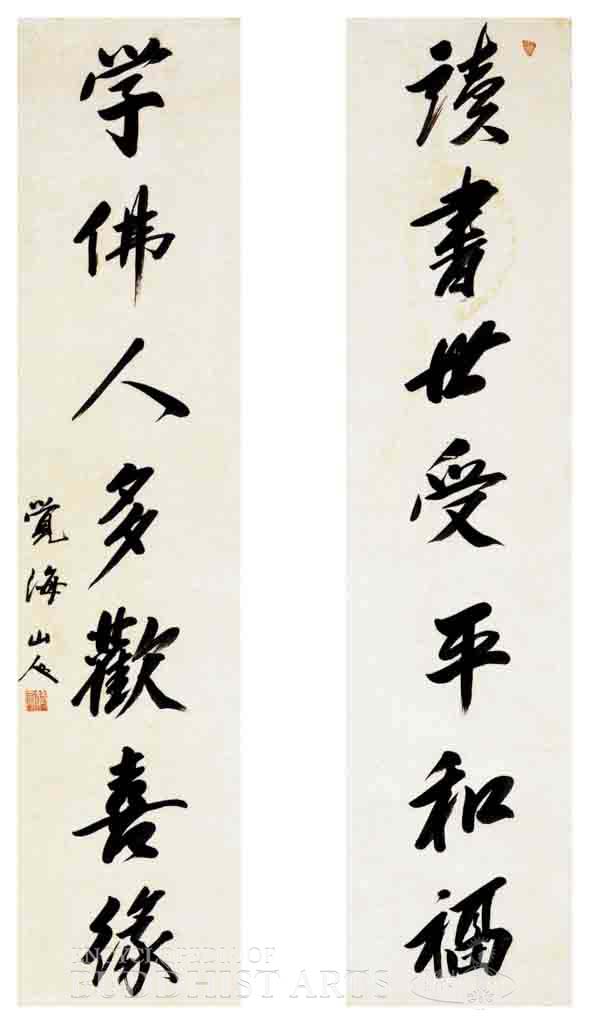 讀書世受平和福
学佛人多歡喜緣
覺海山人
ENCYCLOPEDIA OF
BUDDHIST ARTS